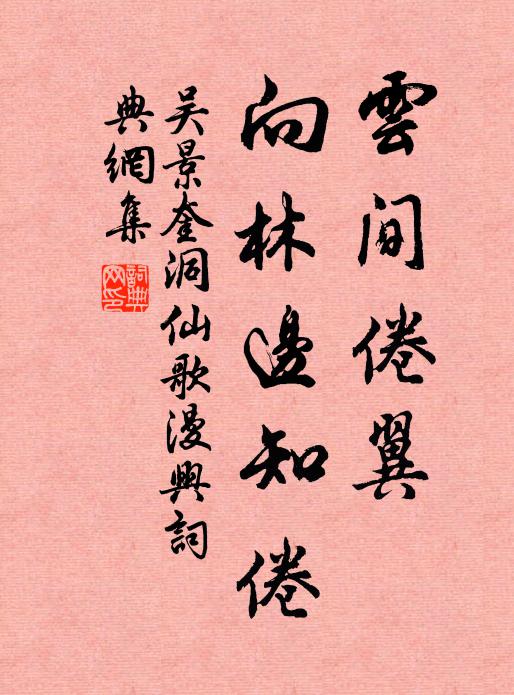 雲間倦翼
向林邊知倦
吴景奎洞仙歌漫興詞
典網集
詞典網印